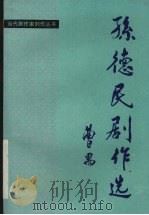 当代剧作家剧作丛书
孫德民剧作选
曹禺